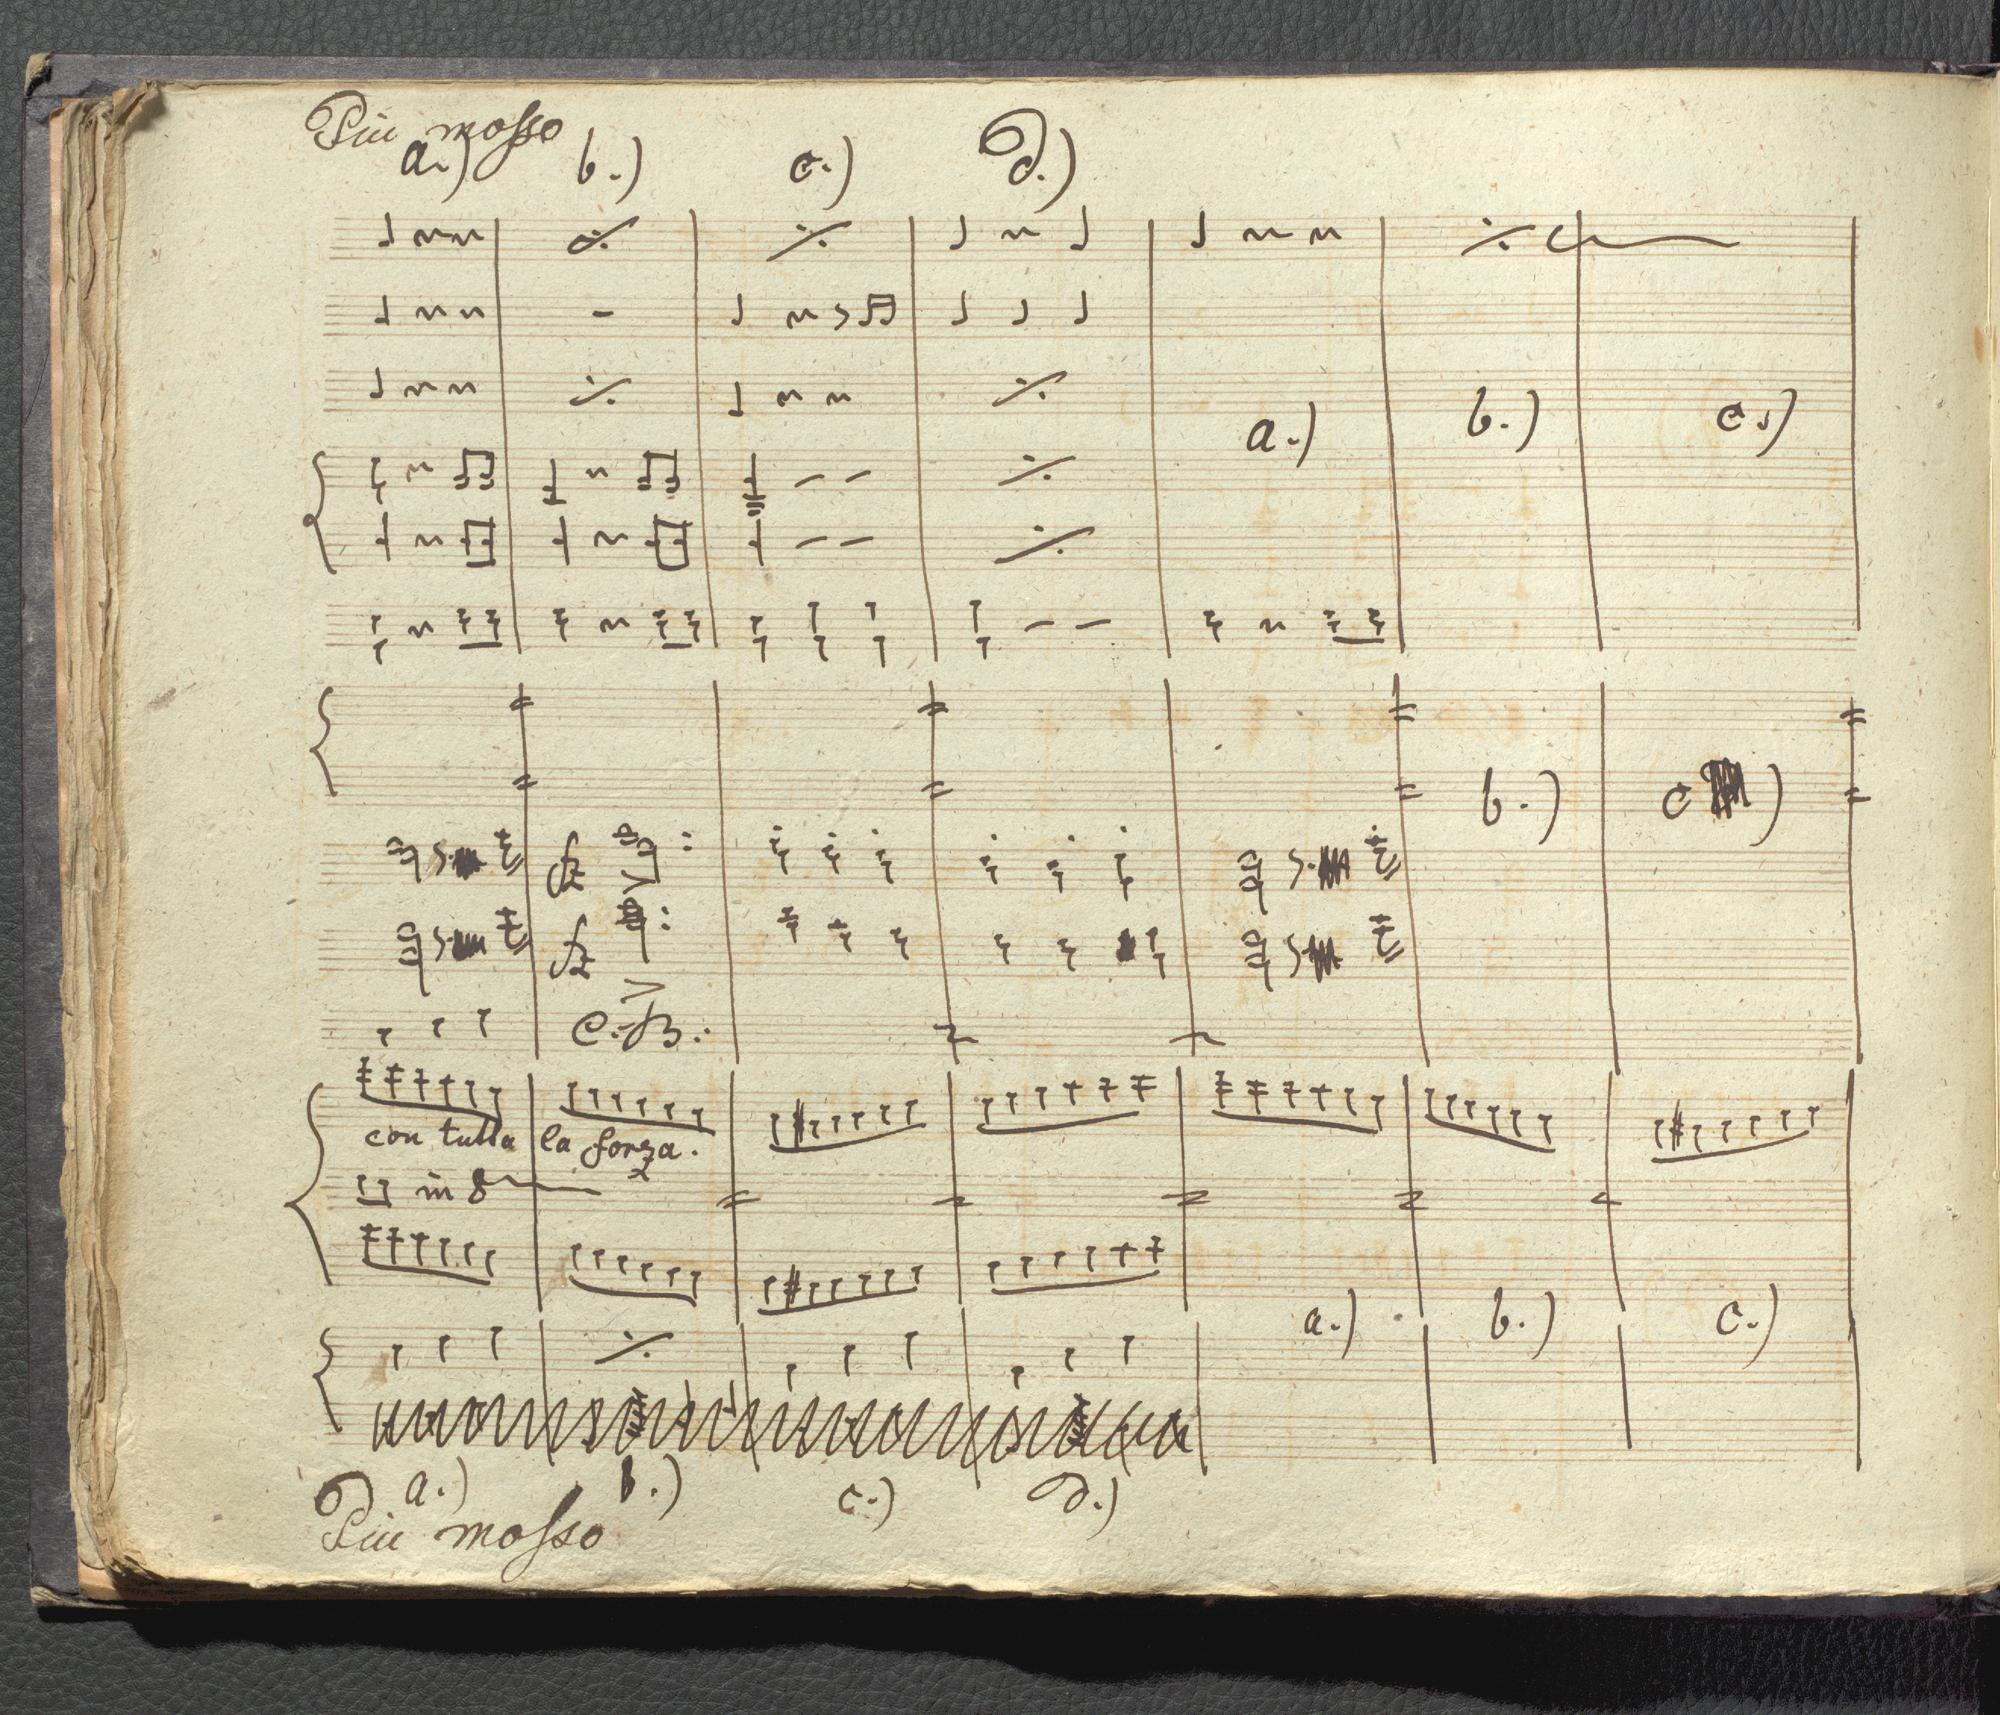 Piu mosso
a.) b.) c.) d.)
a.) b.) c.)
b.) c )
fz
fz
C. B.
con tutta la forza.
in 8
a.) b.) c.)
a.) b.) c.) d.)
Piu mosso